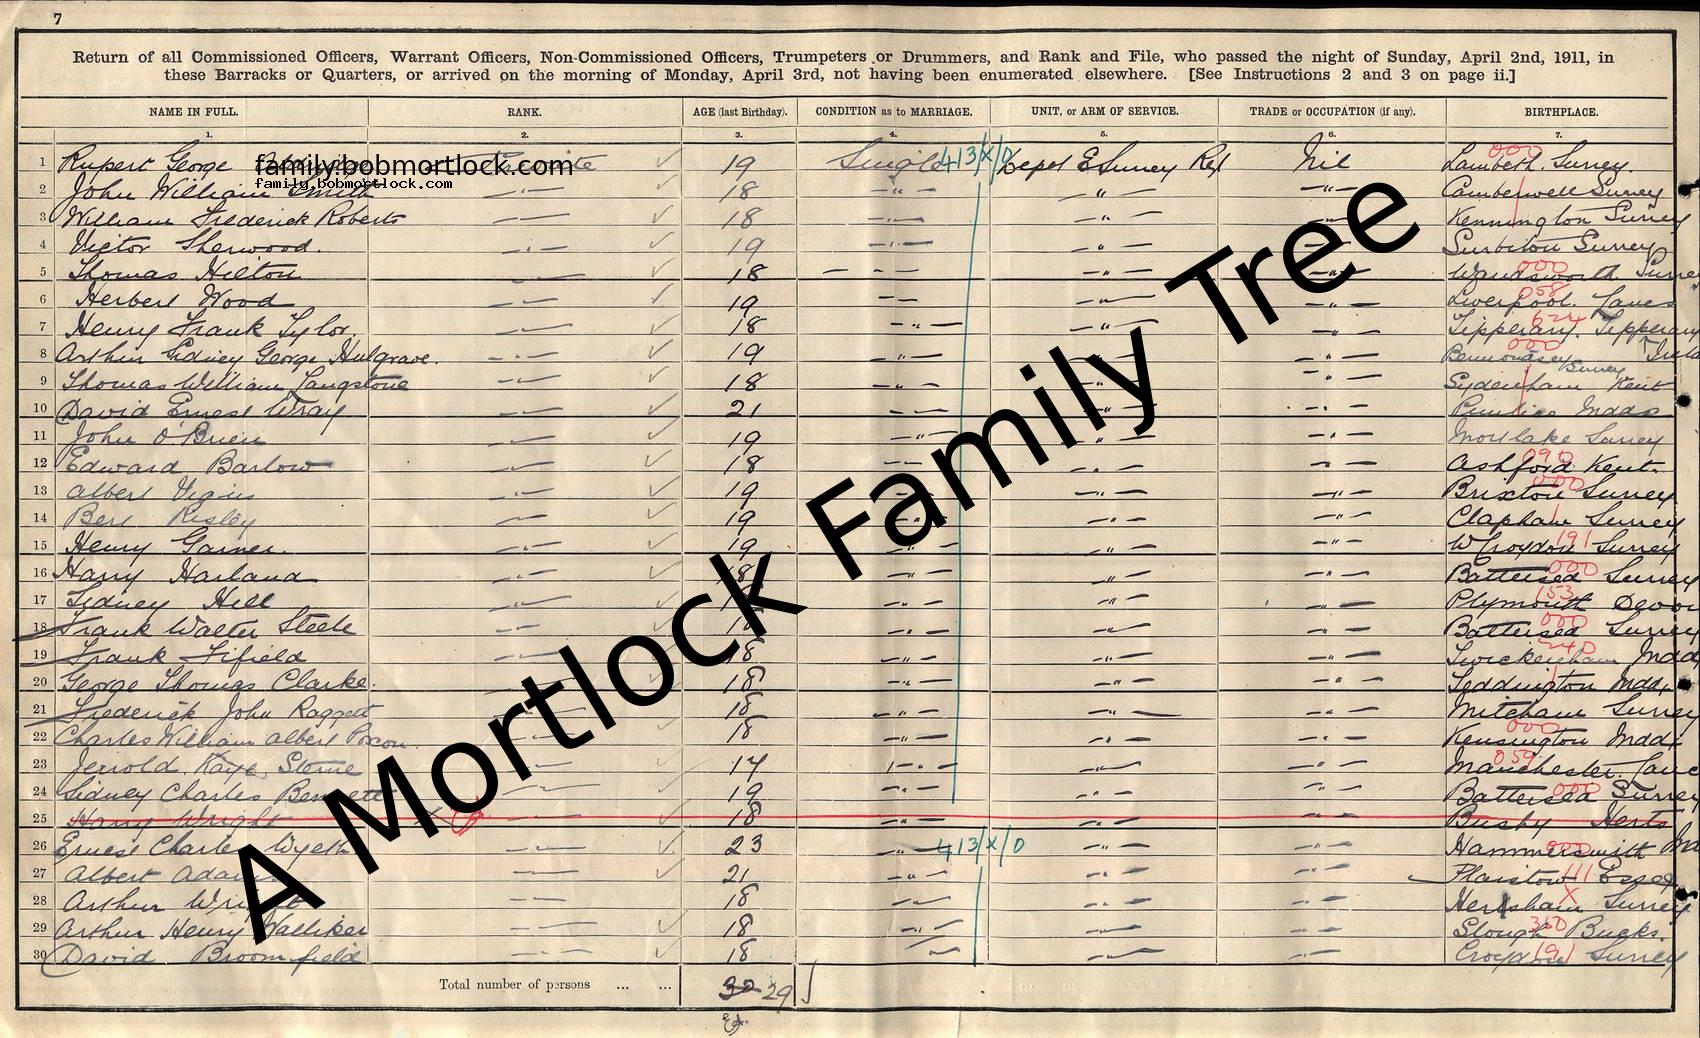 7
Return of all Commissioned Officers, Warrant Officers, Non-Commissioned Officers, Trumpeters or Drummers, and Rank and File, who passed the night of Sunday, April 2nd, 1911, in
these Barracks or Quarters, or arrived on the morning of Monday, April 3rd, not having been enumerated elsewhere. [See Instructions 2 and 3 on page ii.]
NAME IN FULL. RANK. AGE (last Birthday). CONDITION as to MARRIAGE. UNIT, or ARM OF SERVICE. TRADE or OCCUPATION (if any). BIRTHPLACE.
1. 2. 3. 4. 5. 6. 7.
1 Rupert George 19 Single 413/X/0 Depot E Surrey Nil Lambeth. Surrey. 000
family.bobmortlock.com
family.bobmortlock.com
2 John William Smith 18 Camberwell Surrey
3 William Frederick Roberts 18 Kennington Surrey
4 Victor Sherwood. 19 Surbiton Surrey
5 Thomas Hilton 18 Wandsworth. Surrey 000
6 Herbert Wood 19 Liverpool. Lancs 058
7 Henry Frank Tylor. 18 Tipperary. Tipperary 624
8 Arthur Sidney George Hulgrave. 19 Bermondsey Surrey 000
9 Thomas William Langstone 18 Sydenham Kent
10 David Ernest Wray 21 Pimlico Middx
11 John O'Brien 19 Mortlake Surrey
12 Edward Barlow 18 Ashford Kent. 090
13 Albert 19 Brixton Surrey 000
14 Bert Risley 19 Clapham Surrey
15 Henry Garner. 19 W Croydon Surrey 191
16 Harry Harland 18 Battersea Surrey 000
17 Sidney Hill Plymouth Devon 153
18 Frank Walter Steele Battersea Surrey 000
19 Frank Fifield 18 Twickenham Middx 240
20 George Thomas Clarke. 18 Teddington Middx
21 Frederick John Raggett 18 Mitcham Surrey
22 Charles William Albert Poxon. 18 Kensington Middx 000
23 Jerrold Kaye Sterne 14 Manchester. Lanc 059
24 Sidney Charles Bennett 19 Battersea Surrey 000
25 Harry Wright 18 Bushy Herts
26 Ernest Charles Wyeth 23 413/X/0 Hammersmith 000
27 Albert Adams 21 Plaistow Essex 111
28 Arthur Wright 18 Hersham Surrey X
29 Arthur Henry Walliker 18 Slough Bucks. 360
30 David Broomfield 18 Croydon Surrey 191
Total number of persons ... ... 30 29
A Mortlock Family Tree